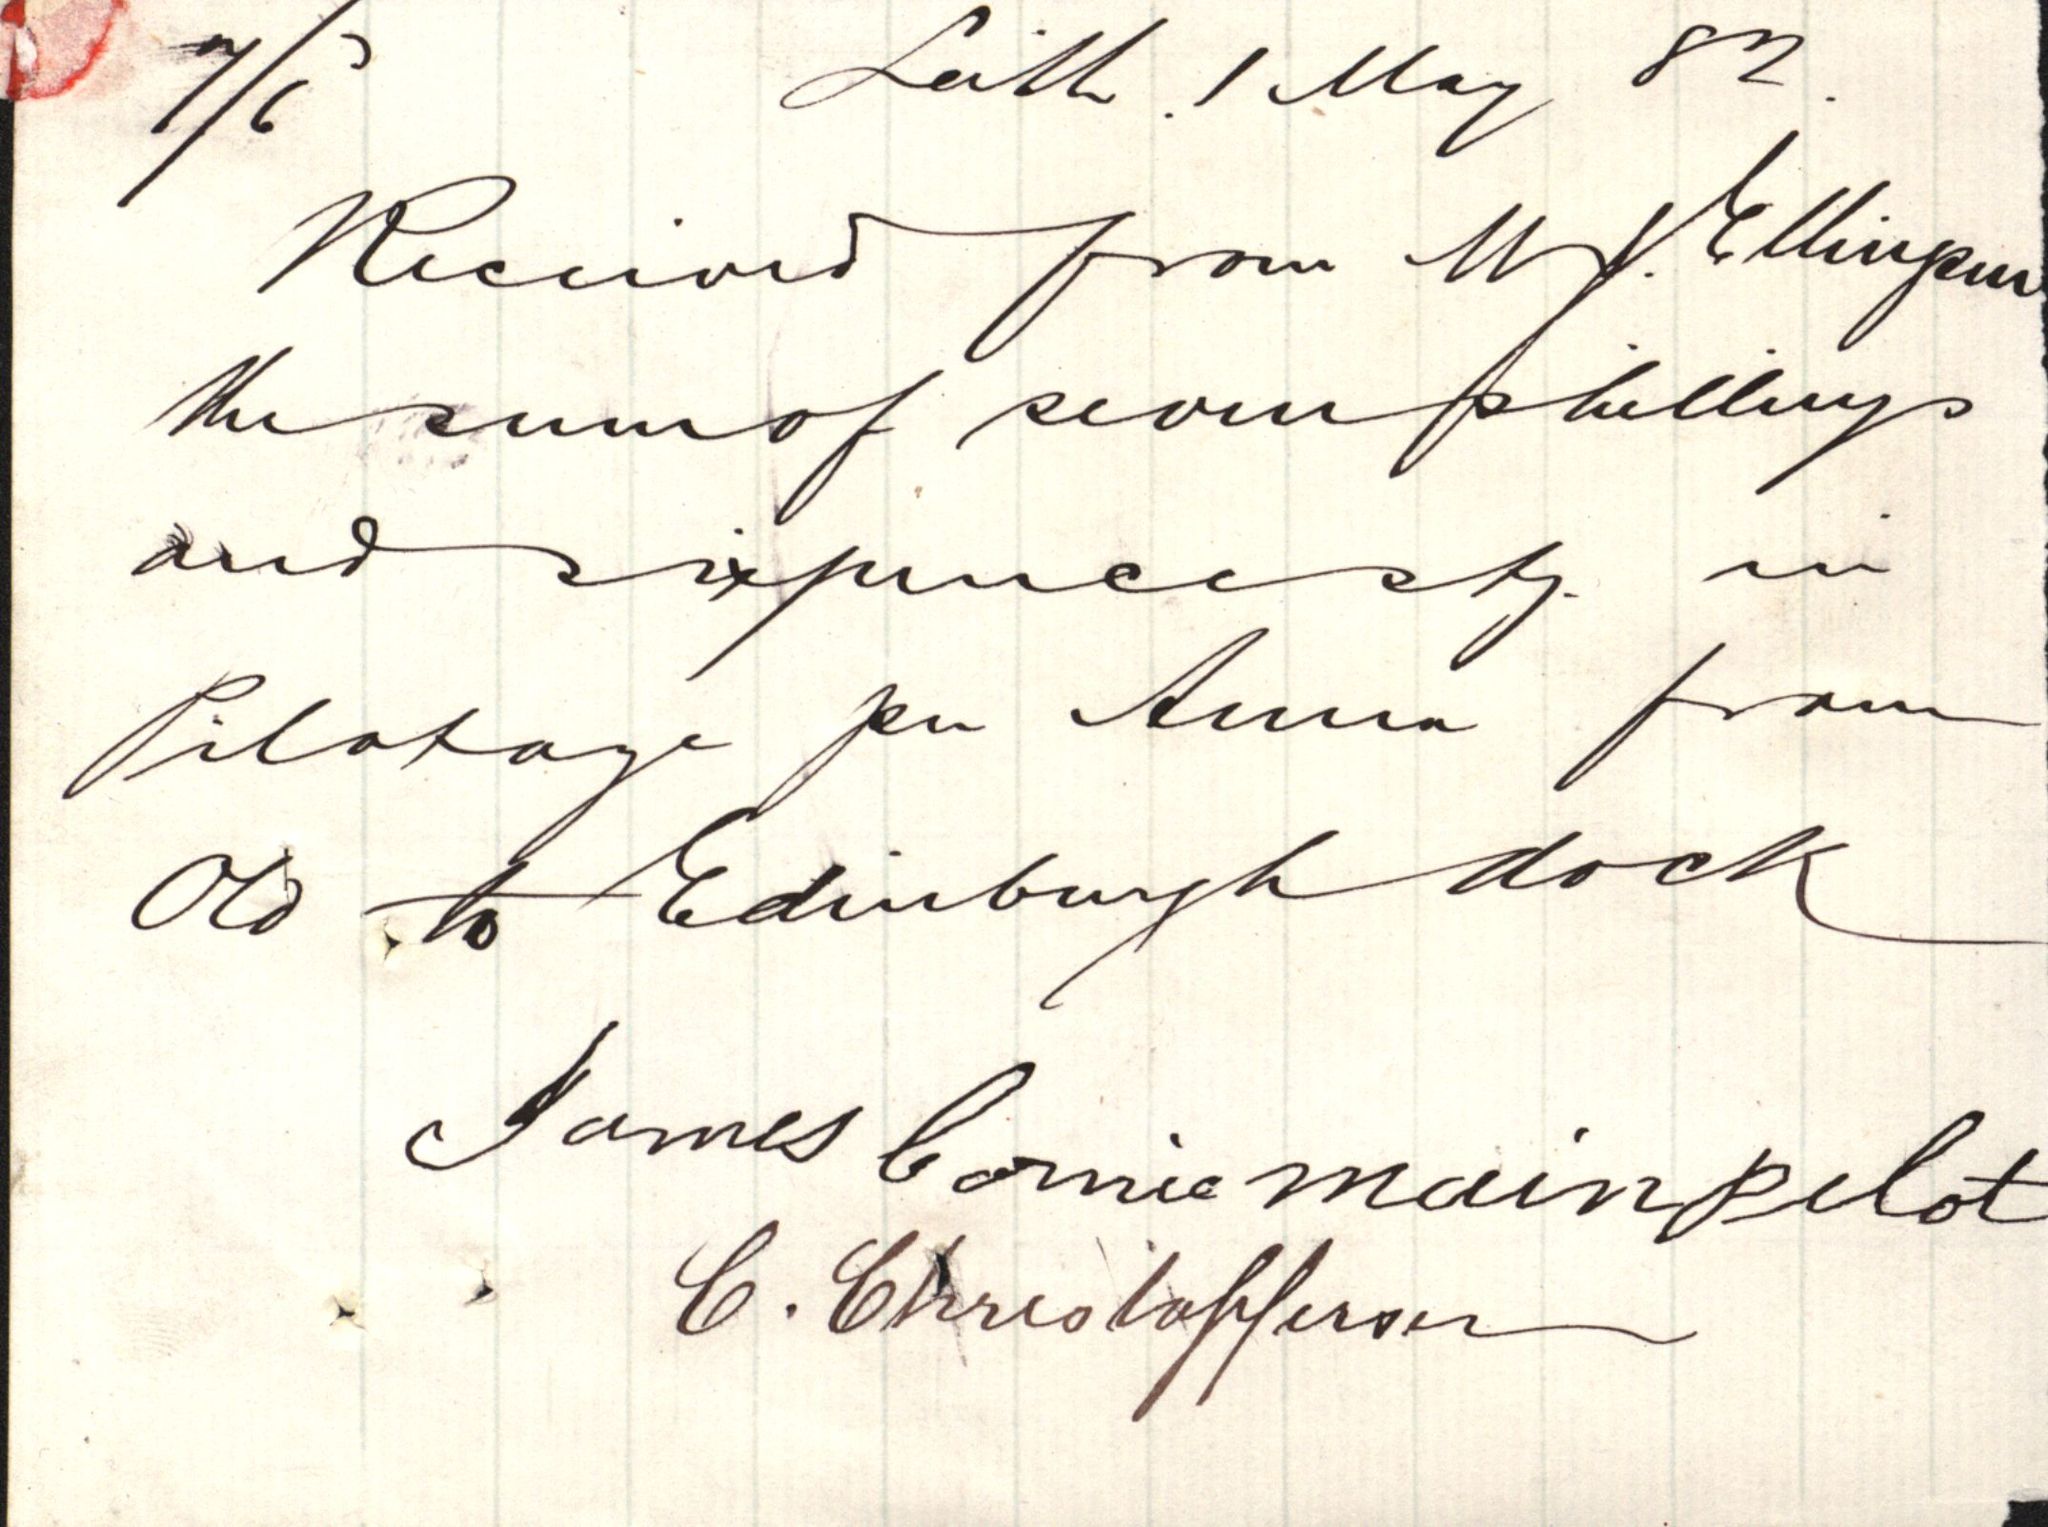 7/6 Leith. 1 May 82.
Received from Mr J. Ellingsen
the sum of seven shillings
and sixpence stg. in
Pilotage per Anna from
Old to Edinburgh dock
James Cornie main pilot
C. Christofferson